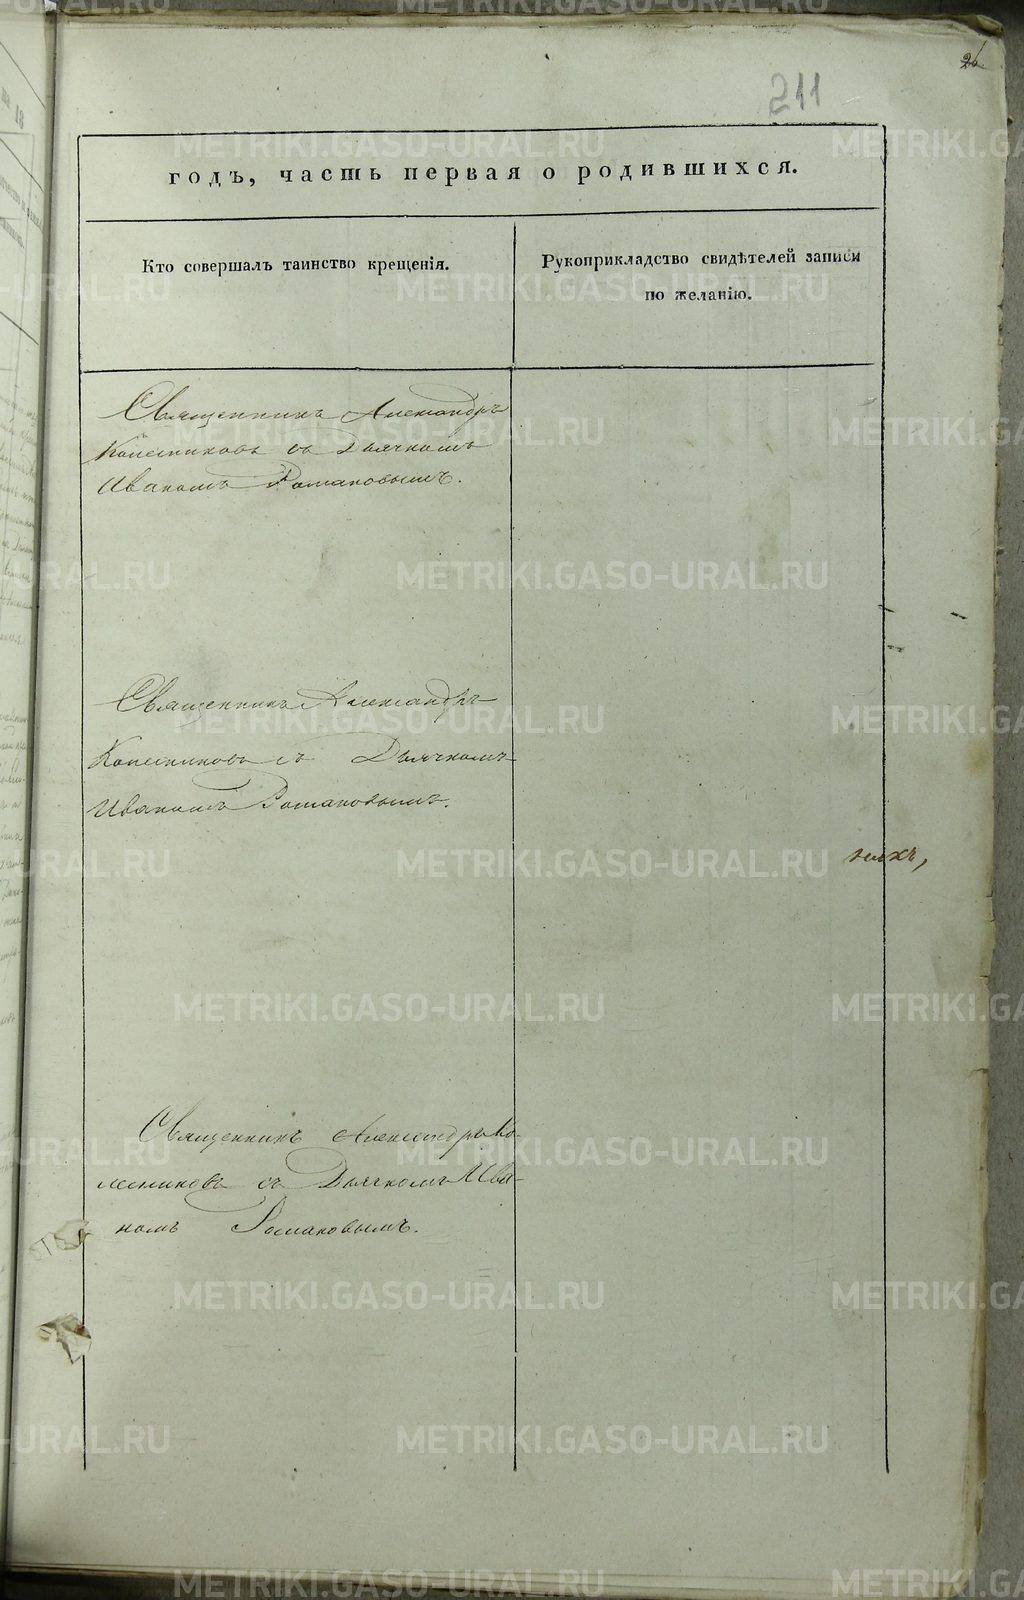 211
годъ, часть первая о родившихся.
Кто совершалъ таинство крещенія.
Рукоприкладство свидѣтелей записи
по желанію.
Священникъ Александръ
Колесниковъ съ Дьячкомъ
Иваномъ Романовымъ.
Священникъ Александръ
Колесниковъ съ Дьячкомъ
Иваномъ Романовымъ.
Священникъ Александръ Ко-
лесниковъ съ Дьячкомъ Ива-
номъ Романовымъ.
METRIKI.GASO-URAL.RU